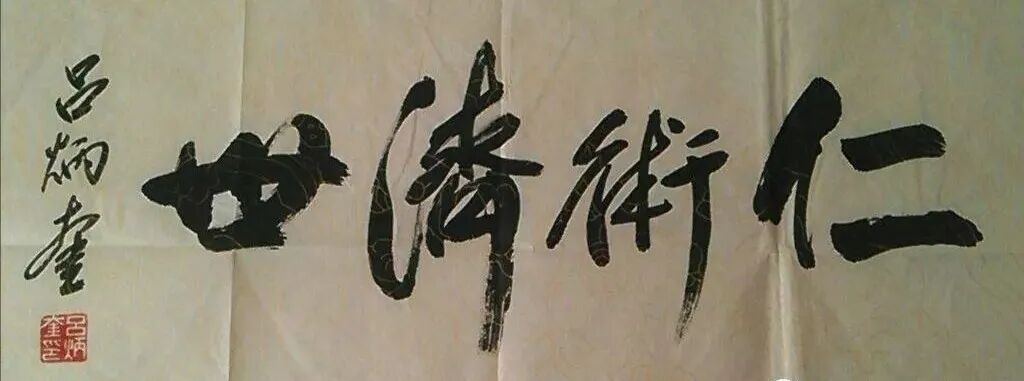 仁術濟世
呂炳奎
呂炳奎印